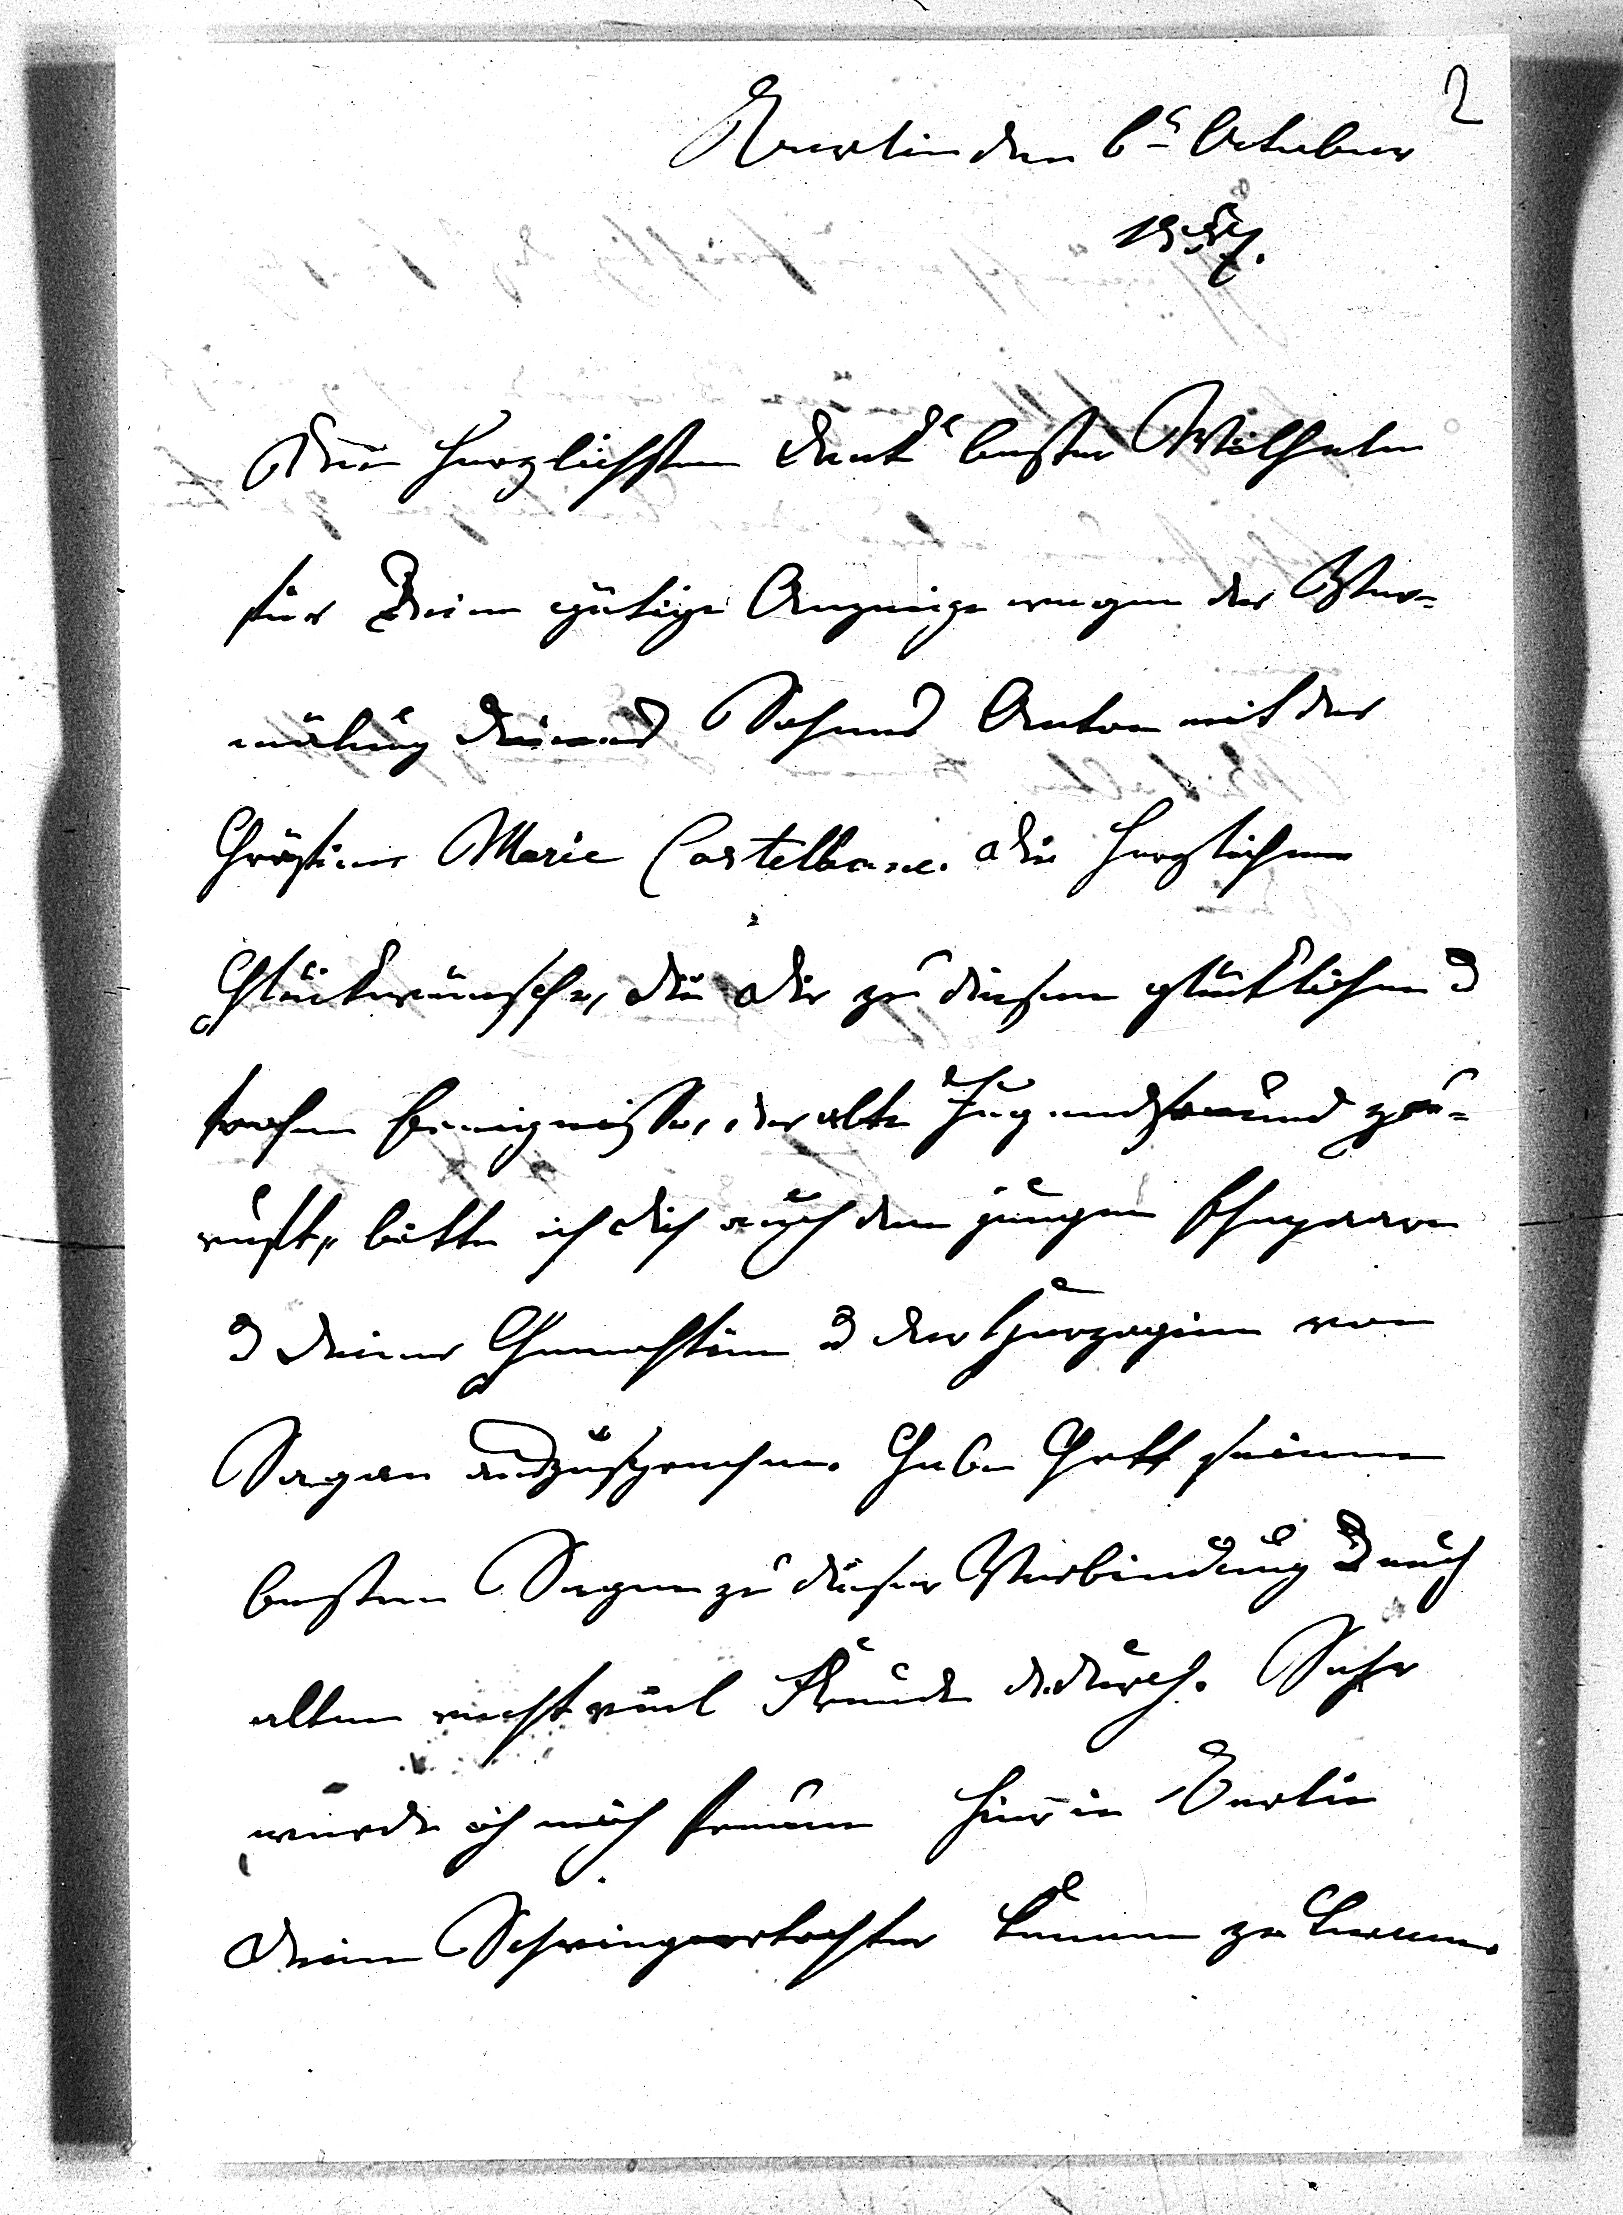 2
Berlin den 6t October
1857.
Den herzlichsten Dank bester Wilhelm
für Deine gütige Anzeige wegen der Ver-
mälung Deines Sohnes Anton mit der
Gräfinn Marie Castellane. Die herzlichen
Glückwünsche, die Dir zu diesem glücklichen &
frohen Ereignisse, der alte Jugendfreund zu-
ruft, bitte ich Dich auch dem jungen Ehepaare
& Deiner Gemahlinn & der Herzoginn von
Sagan auszusprechen. Gebe Gott seinen
besten Segen zu dieser Verbindung & Euch
allen recht viel Freude dadurch. Sehr
würde ich mich freuen hier in Berlin
Deine Schwiegertochter kennen zu lernen.